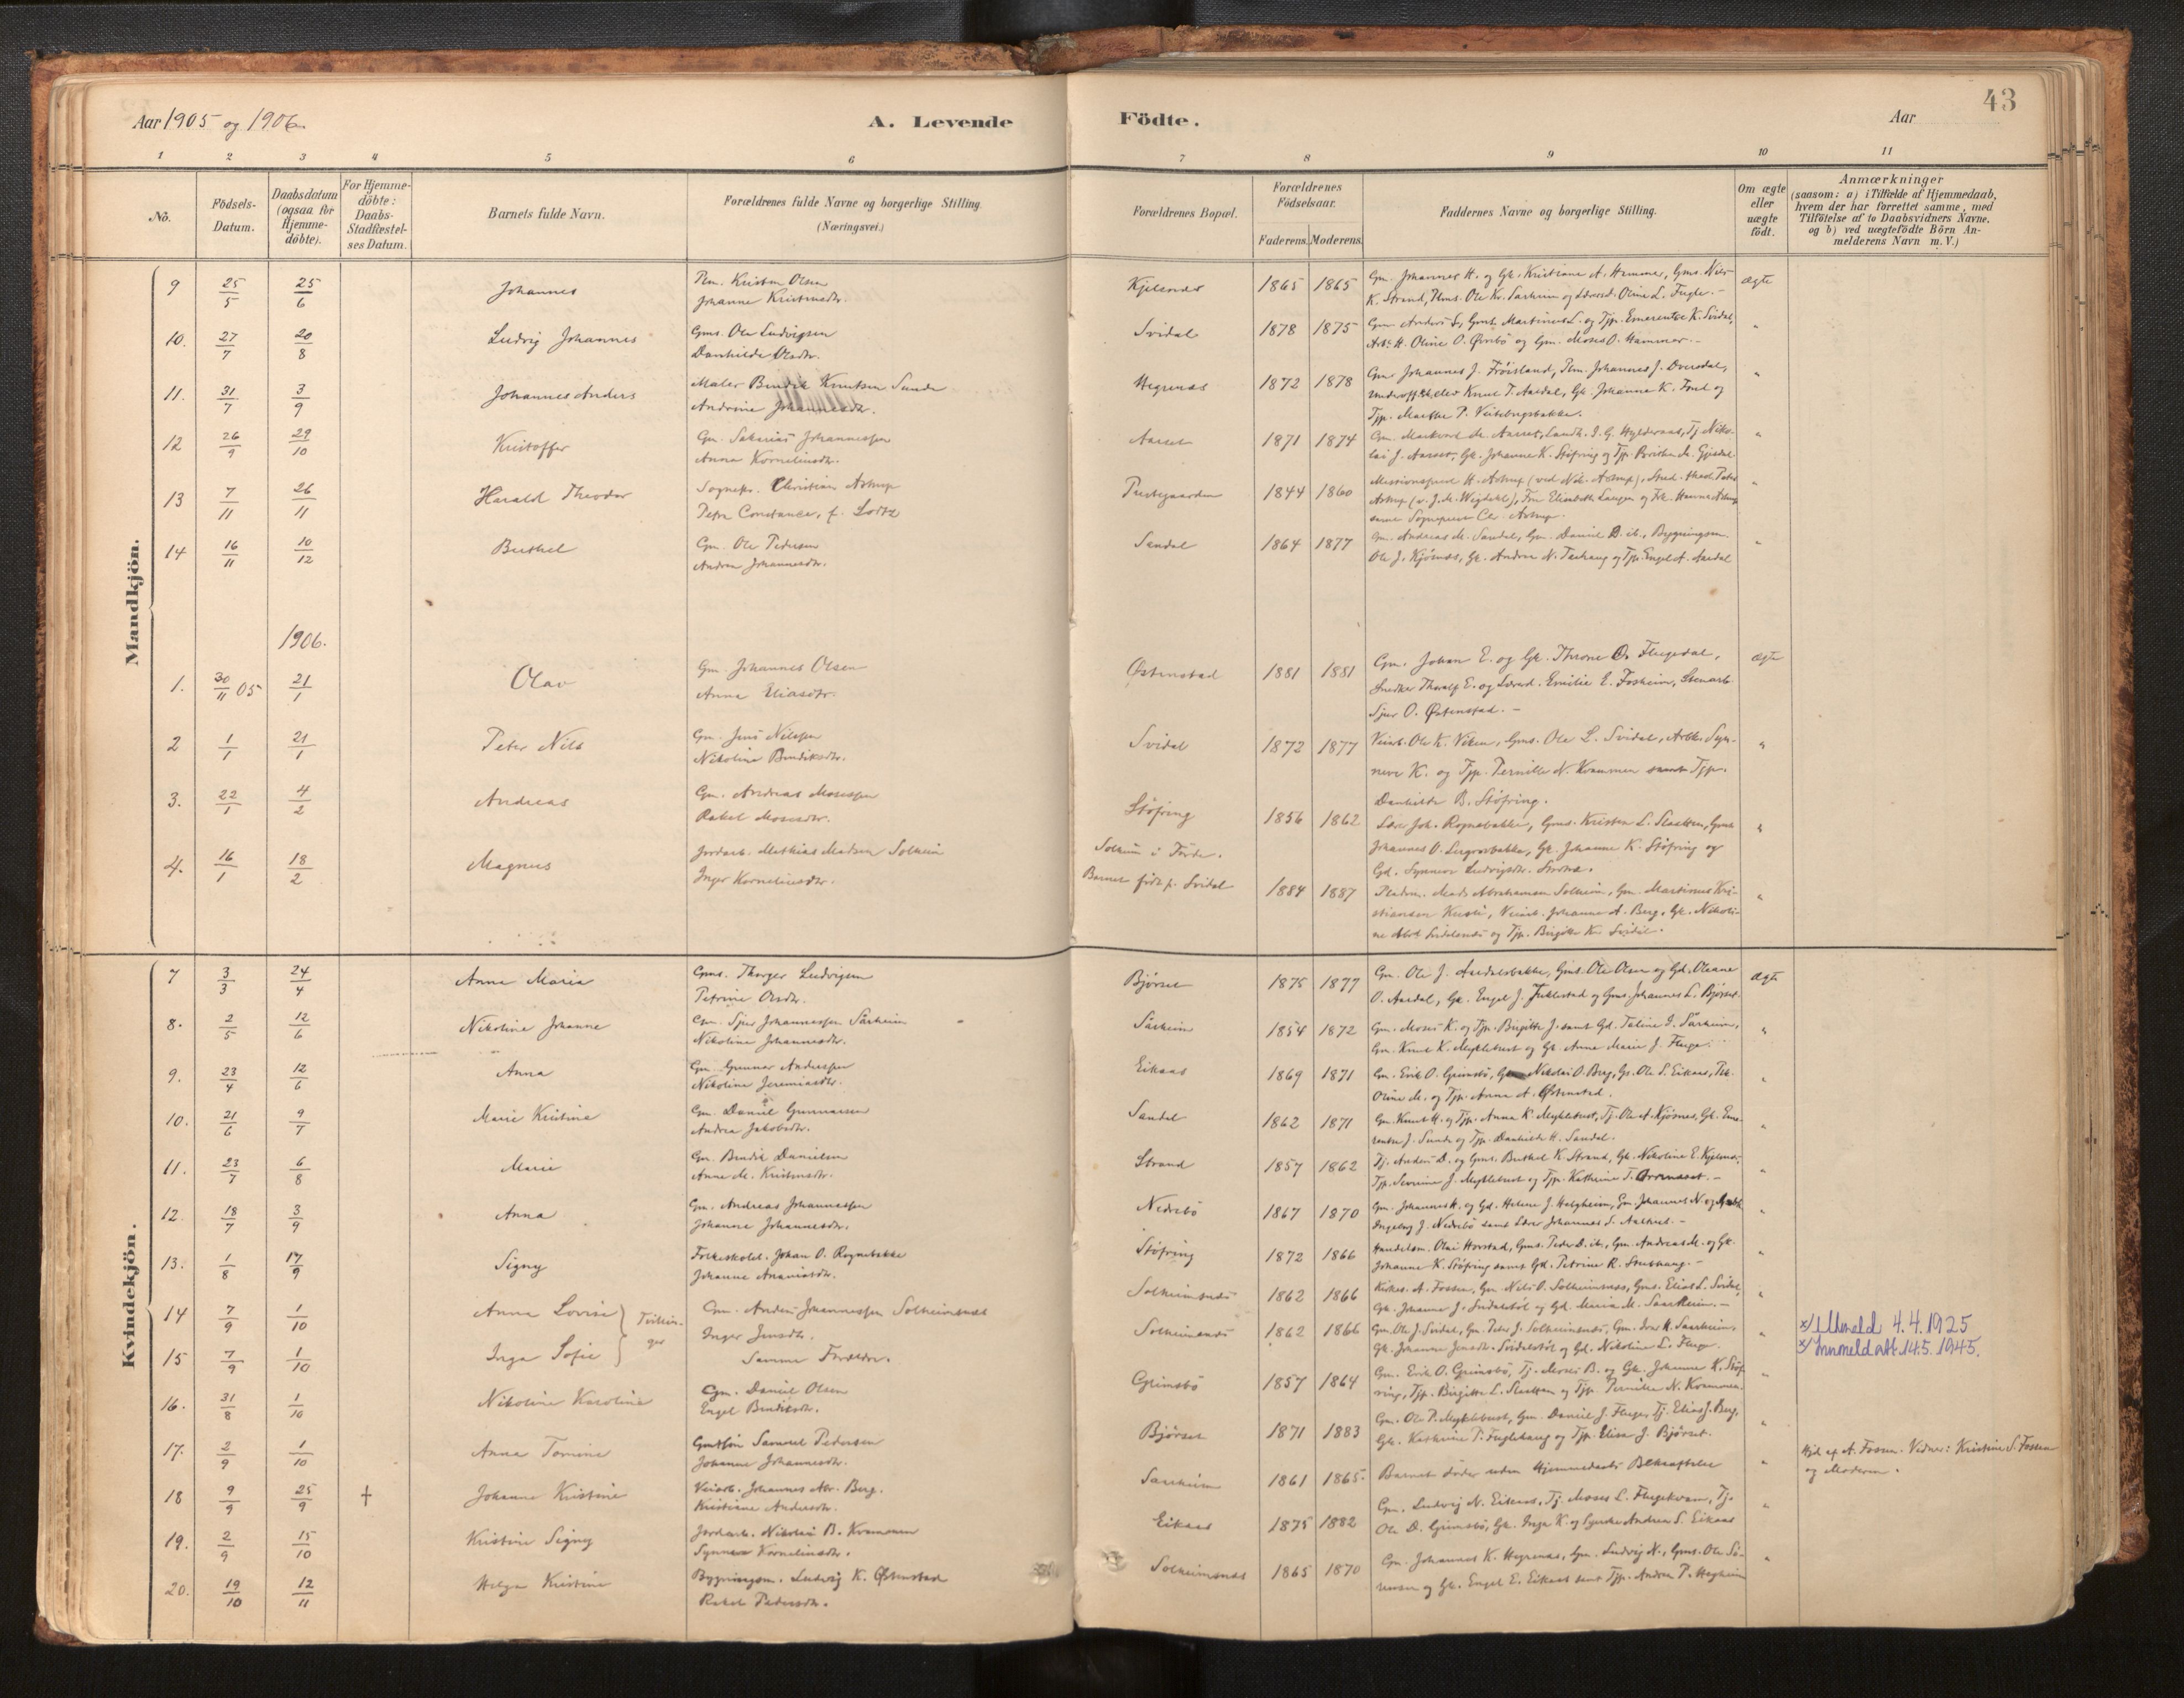 43
Aar 1905 og 1906.
A. Levende Födte.
Aar
1 2 3 4 5 6 7 8 9 10 11
No.
Födsels-Datum.
Daabsdatum (ogsaa for Hjemme-döbte).
For Hjemme-döbte: Daabs-Stadfæstel-ses Datum.
Barnets fulde Navn.
Forældrenes fulde Navne og borgerlige Stilling.
(Næringsvei.)
Forældrenes Bopæl.
Forældrenes Födselsaar.
Faderens. Moderens.
Faddernes Navne og borgerlige Stilling.
Om ægte eller uægte födt.
Anmærkninger
(saasom: a) i Tilfælde af Hjemmedaab,
hvem der har forrettet samme, med
Tilföielse af to Daabsvidners Navne,
og b) ved uægtefödte Börn An-
melderens Navn m. V.)
Mandkjön.
9 25/5 25/6 Johannes Kristen Olsen Kjelsnes 1865 1865 Gm. Johannes H. og Gk. Kristiane A. Hammer, Gms. Nils ægte
Johanne Kristensdtr. K. Strand, Ole Kr. Sarheim og Oline L. Fugle. -
10. 27/7 20/8 Ludvig Johannes Gms. Ole Ludvigsen Svidal 1878 1875 Gm. Anders L., Gms. Martinus L. og Tjp. Emerentse K. Svidal, "
Danhilde Olsdtr. Oline O. og Gm. Moses O. Hammer. -
11. 31/7 3/9 Johannes Anders Maler Bendik Knutsen Sunde Hegrenæs 1872 1878 Gm. Johannes J. Frøisland, Johannes J. "
Andrine Johannesdtr. Knut T. Aardal, Gk. Johanna K. og
Tjp. Marthe P.
12 26/9 29/10 Kristoffer Gm. Sakarias Johannessen Aasset 1871 1874 Gm. Aasset, Tj. Niko- "
Anna Kornelinsdtr. lai J. Aasset, Gk. Johanne K. Støfring og Tjp.
13 7/11 26/11 Harald Theodor Sognepr. Christian Astrup Prestegaarden 1844 1860 H. Astrup (ved Nik. Astrup), "
Petra Constance, f. Lodtz Astrup Elisabeth og Frk. Hanna Astrup
samt Sognepræst Chr. Astrup.
14 16/11 10/12 Berthel Gm. Ole Pedersen Sandal 1864 1877 Gm. Andreas M. Sandal, Gm. Daniel B. ib., Bygningsm. "
Andrea Johannesdtr. Ole J. Kjøsnæs, Gk. Andrea N. og Tjp. Engel A. Aardal
1906.
1. 30/11 05 21/1 Olav Gm. Johannes Olsen Østenstad 1881 1881 Gm. Johan E. og Gk. Throne O. Flugedal, ægte
Anna Eliasdtr. Snedker Thoralf E. og Emilie E. Fosheim, Stenarb.
Sjur O. Østenstad. -
2 1/1 21/1 Peter Nils Gm. Jens Nilssen Svidal 1872 1877 Veiarb. Ole K. Viken, Gms. Ole L. Svidal, Arbk. Syn- "
Nikoline Bendiksdtr. neve K. og Tjp. Pernille N. Kvammen samt Tjp.
Danhilde B. Støfring.
3. 22/1 4/2 Andreas Gm. Andreas Mosessen Støfring 1856 1862 Lærer Joh. Rognebakke, Gms. Kristen L. Slaatten, "
Rakel Mosesdtr. Johannes O. Gk. Johanne K. Støfring og
Gd. Synneve Ludvigsdtr.
4. 16/1 18/2 Magnus Jordarb. Mathias Madsen Solheim Solheim i Førde. Barnet født p. Svidal 1884 1887 Mads Abrahamsen Solheim, Gm. Martinus Kri- "
Inger Kornelinsdtr. stiansen Veiarb. Johannes A. Berg, Gk. Nikoli-
ne og Tjp. Birgitte K. Svidal.
Kvindekjön.
7 3/3 24/4 Anne Maria Gms. Thorger Ludvigsen Bjørset 1875 1877 Gm. Ole J. Aardalsbakke, Gms. Ole Olsen og Gd. Oleane ægte
Petrine Olsdtr. O. Aardal, Gk. Engel J. og Gms. Johannes L. Bjørset.
8. 2/5 12/6 Nikoline Johanne Gm. Sjur Johannessen Sårheim Sårheim 1854 1872 Gm. Moses K. og Tjp. Birgitte J. samt Gd. Taline I. Sårheim, "
Nikoline Johannesdtr. Gm. Knut K. Myklebust og Gk. Anne Marie J. Fluge.
9. 23/4 12/6 Anna Gm. Gunnar Anderssen Eikaas 1869 1871 Gm. Erik O. Grimsbø, Nikolai O. Berg, Gs. Ole S. Eikaas, "
Nikoline Jeremiasdtr. Oline M. og Tjp. Anna A. Østenstad.
10. 21/6 9/7 Marie Kristine Gm. Daniel Gunnarsen Sandal 1862 1871 Gm. Knut H. og Tjp. Anna K. Myklebust, Tj. Ole A. Kjøsnes, Gk. Eme- "
Andrea Jakobsdtr. rentse J. Sunde og Tjp. Danhilde H. Sandal.
11. 23/7 6/8 Marie Gm. Bendik Danielsen Strand 1857 1862 Tj. Anders D. og Gms. Berthel K. Strand, Gk. Nikoline E. Kjelsnes, "
Anne M. Kristensdtr. Tjp. Severine J. Myklebust og Tjp. Kathrine T. -
12. 18/7 3/9 Anna Gm. Andreas Johannessen Nedrebø 1867 1870 Gm. Johannes K. og Gd. Helene J. Helgheim, Gm. Johannes N. og "
Johanne Johannesdtr. Ingeborg J. Nedrebø samt Lærer Johannes S. Aarhus. -
13. 1/8 17/9 Signy Folkeskolel. Johan O. Rognebakke Støfring 1872 1866 Handelsm. Olai Horstad, Gms. Peder D. ib., Gm. Andreas M. og Gk. "
Johanne Ananiasdtr. Johanne K. Støfring samt Gd. Petrine R. -
14 7/9 1/10 Anna Lovise } Tvillin-ger Gm. Anders Johannessen Solheimsnes Solheimsnæs 1862 1866 Kirkes. A. Fossen, Gm. Nils O. Solheimsnæs, Gms. Elias L. Svidal, "
Inger Jensdtr. Gk. Johanne J. Svidalstøl og Gd. Maria M. Saarheim. -
15 7/9 1/10 Inga Sofie Samme Forældre. Solheimsnæs 1862 1866 Gm. Ole J. Svidal, Gm. Peder J. Solheimsnæs, Gm. Iver K. Saarheim, " x/ Utmeld 4.4.1925
Gk. Johanne Jensdtr. Svidalstøl og Gd. Nikoline L. Fluge. x/ Innmeld att 14.5.1945.
16. 31/8 1/10 Nikoline Karoline Gm. Daniel Olsen Grimsbø 1857 1864 Gm. Erik O. Grimsbø, Tj. Moses B. og Gk. Johanne K. Støf- "
Engel Bendiksdtr. ring, Tjp. Birgitte L. Slaatten og Tjp. Pernille N. Kvammen.
17. 2/9 1/10 Anna Tomine Samuel Pedersen Bjørset 1871 1883 Gm. Ole P. Myklebust, Gm. Daniel J. Fluge, Tj. Elias J. Berg, "
Johanne Johannesdtr. Gk. Kathrine T. Fuglehaug og Tjp. Elisa J. Bjørset.
18 9/9 25/9 † Johanne Kristine Veiarb. Johannes Abr. Berg. Saarheim 1861 1865 Barnet døde uden Hjemmedaabs Bekræftelse " Hjd. af A. Fossen. Vidner: Kristine S. Fossen
Kristiane Andersdtr. og Moderen.
19. 2/9 15/10 Kristine Signy Jordarb. Nikolai B. Kvammen Eikaas 1875 1882 Gm. Ludvig N. Eikaas, Tj. Moses L. Flugekvam, Tj. "
Synneve Kornelinsdtr. Ole D. Grimsbø, Gk. Inga K. og Syerske Andrea S. Eikaas
20. 19/10 12/11 Helga Kristine Bygningsm. Ludvig K. Østenstad Solheimsnæs 1865 1870 Gm. Johannes K. Hegrenæs, Gm. Ludvig N., Gms. Ole Sø- "
Rakel Pedersdtr. rensen og Gk. Engel E. Eikaas samt Tjp. Andrea P.